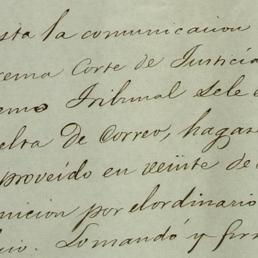 sta la comunicacion
rema Corte de Justicia
emo Tribunal Sele
elta de Correo, hagase
proveido en veinte de
nicion por el ordinario
cio. Lo mandó y firm